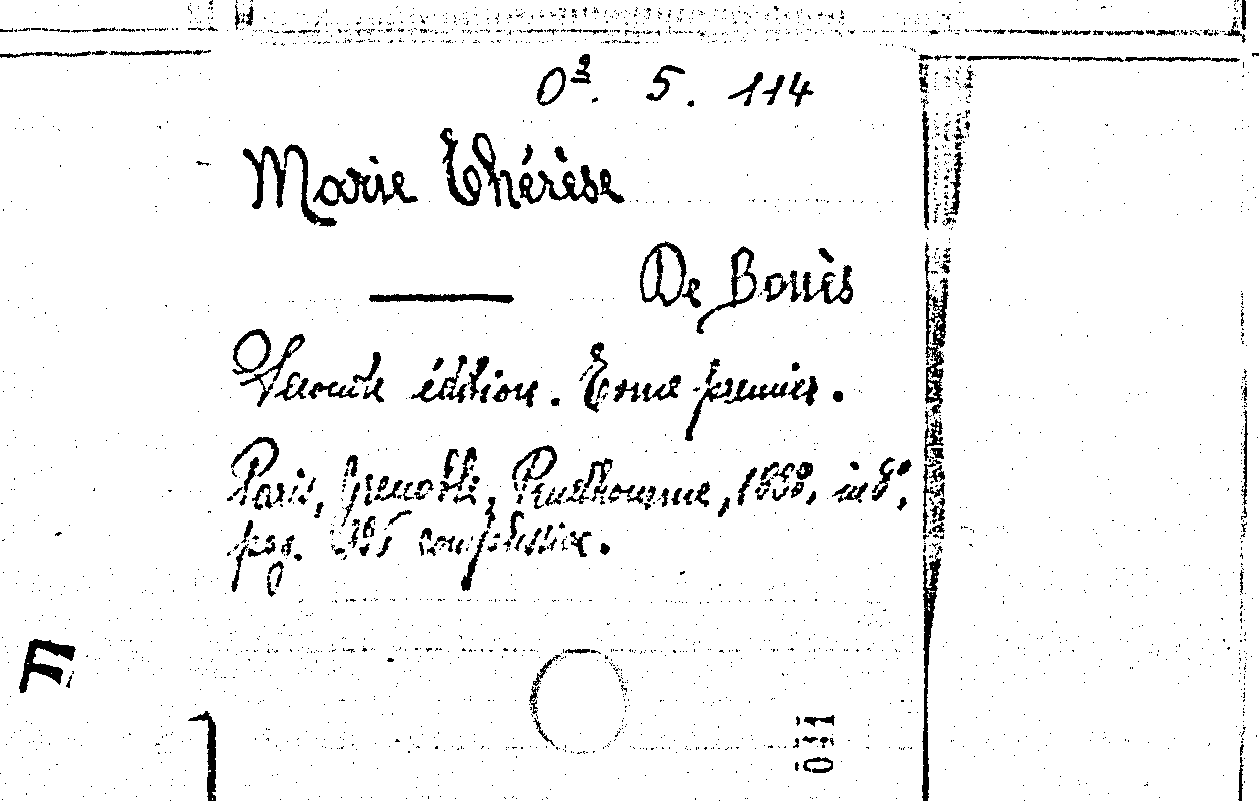 O². 5. 114
Marie Thérèse
De Bouès
Seconde édition. Tome premier.
Paris, Grenoble, Prudhomme, 1838, in 8°,
pag. 385 complessive.
011